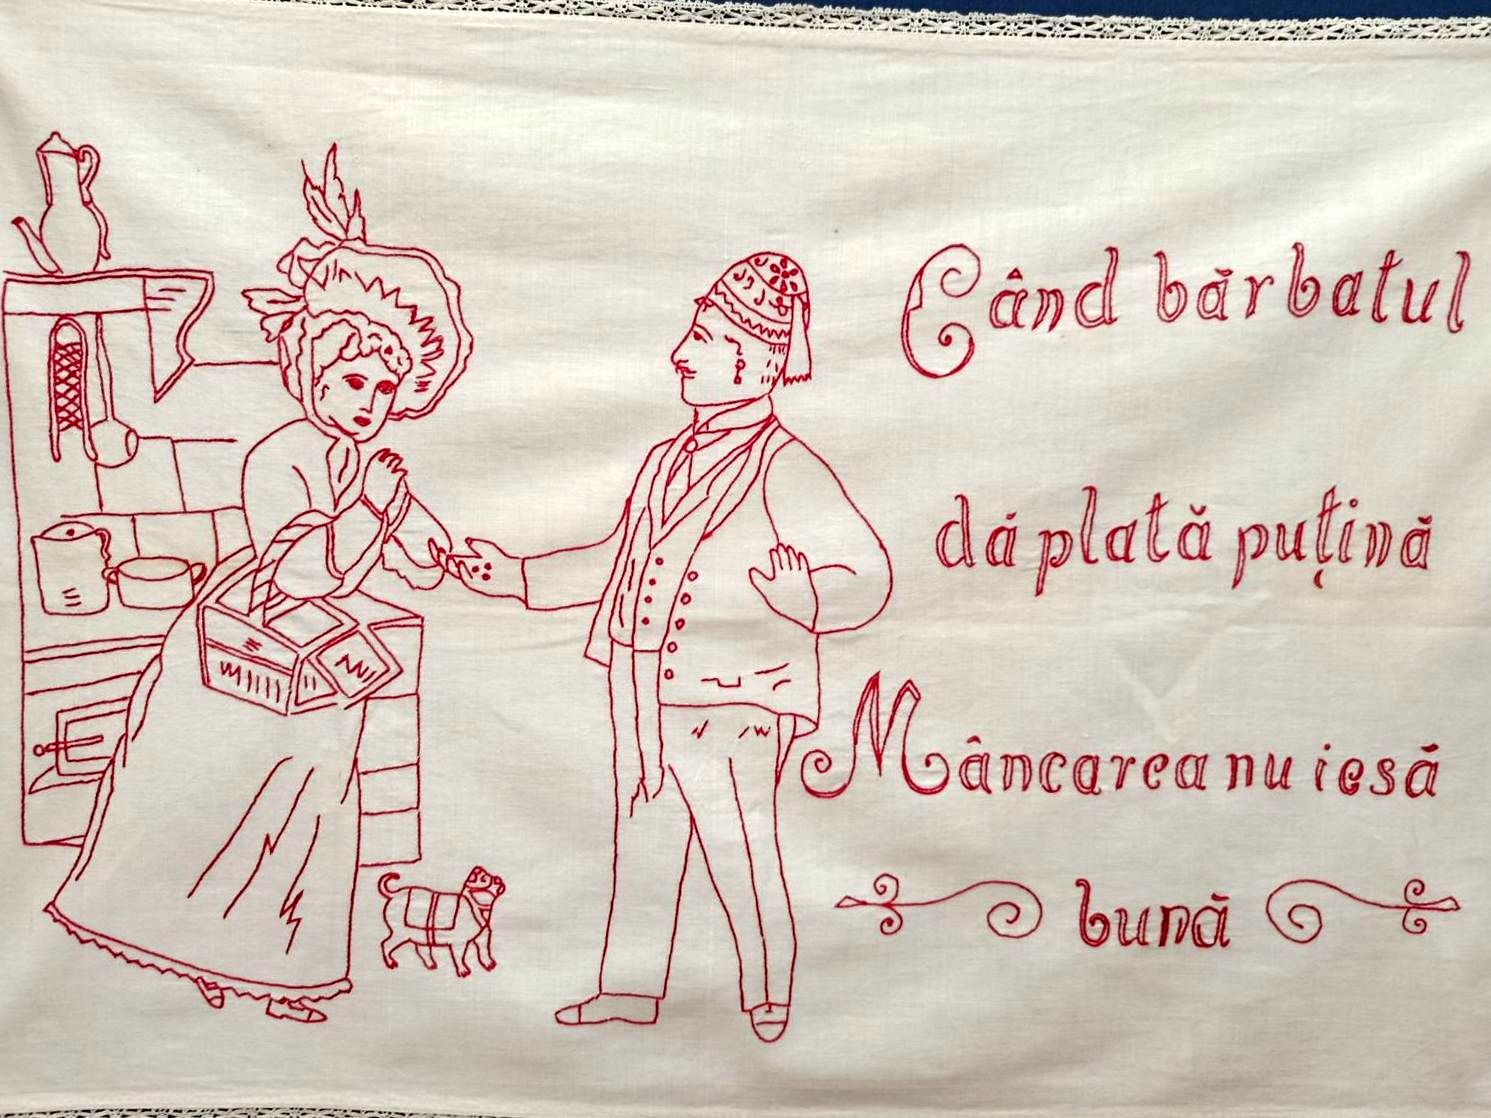 Când bărbatul
dá plată puțină
Mâncarea nu iesă
bună